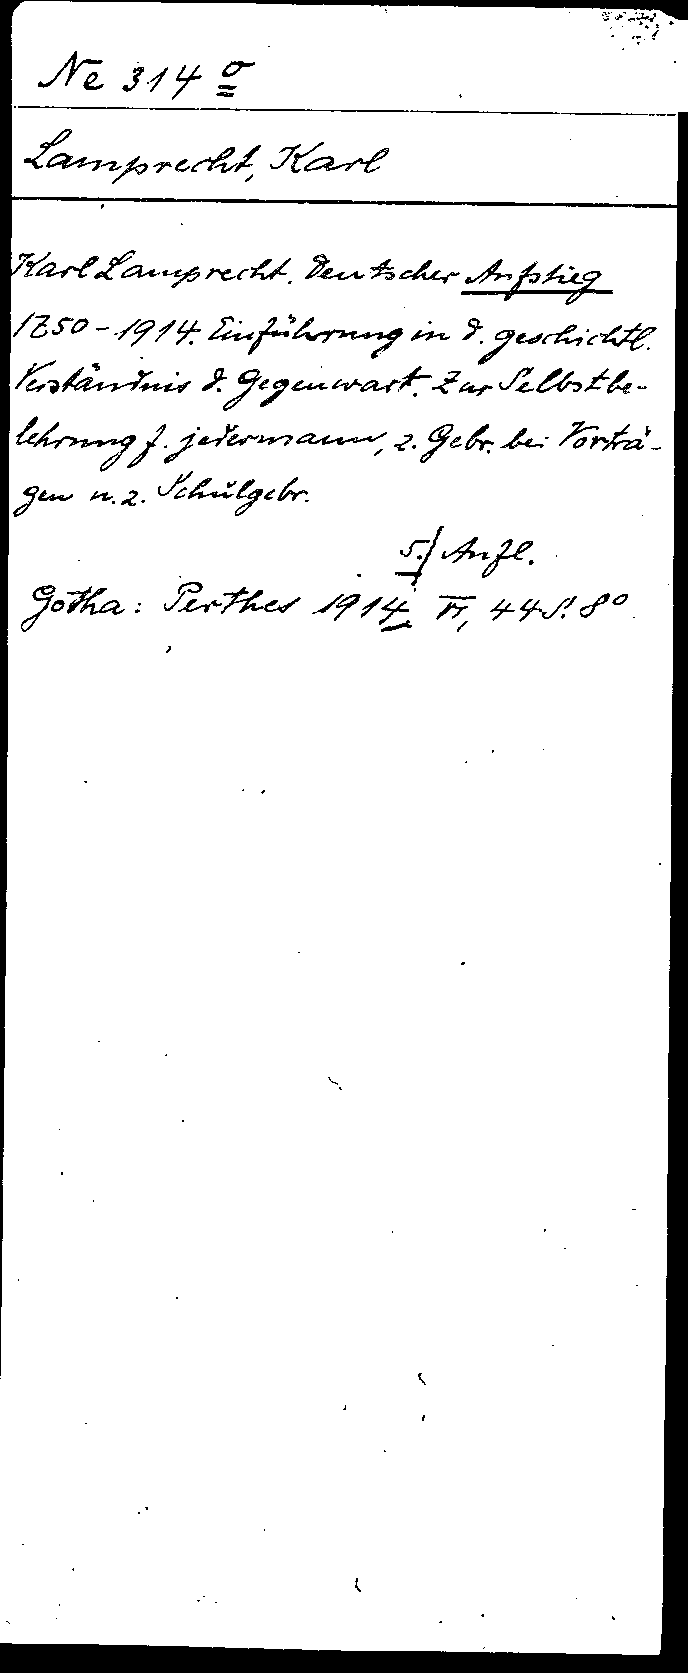 Ne 314 o
Lamprecht, Karl
Karl Lamprecht. Deutscher Aufstieg
1750-1914. Einführung in d. geschichtl.
Verständnis d. Gegenwart. Zur Selbstbe-
lehrung f. jedermann, z. Gebr. bei Vorträ-
gen u. z. Schulgebr.
5./ Aufl.
Gotha: Perthes 1914. VI, 44 S. 8°